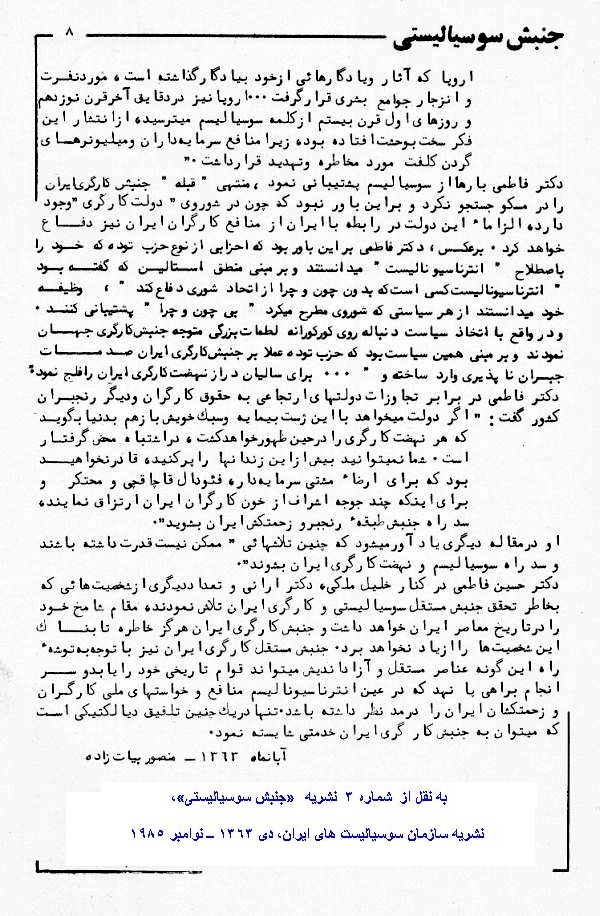 جنبش سوسیالیستی ۸
اروپا که آثار ویادگارهائی ازخود بیادگارگذاشته است، موردنفرت
و انزجار جوامع بشری قرارگرفت ۰۰۰اروپا نیز دردقایق آخرقرن نوزدهم
و روزهای اول قرن بیستم ازکلمه سوسیالیسم میترسید، ازانتشار این
فکر سخت بوحشت افتاده بود، زیرا منافع سرمایه‌داران ومیلیونرهای
گردن کلفت مورد مخاطره وتهدید قرارداشت ۰"
دکتر فاطمی بارها از سوسیالیسم پشتیبانی نمود ، منتهی " قبله " جنبش کارگری ایران
را در مسکو جستجو نکرد و براین باور نبود که چون در شوروی " دولت کارگری " وجود
دارد، الزاما" این دولت در رابطه با ایران از منافع کارگران ایران نیز دفاع
خواهد کرد ۰ برعکس ، دکتر فاطمی بر این باور بود که احزابی از نوع حزب توده که خود را
باصطلاح " انترناسیونالیست " میدانستند و بر مبنی منطق استالین که گفته بود
" انترناسیونالیست کسی است که بدون چون و چرا از اتحاد شوری دفاع کند " ، وظیفه
خود میدانستند از هر سیاستی که شوروی مطرح میکرد " بی چون و چرا " پشتیبانی کنند ۰
و در واقع با اتخاذ سیاست دنباله روی کورکورانه لطمات بزرگی متوجه جنبش کارگری جهان
نمودند و بر مبنی همین سیاست بود که حزب توده عملا بر جنبش کارگری ایران صدمات
جبران ناپذیری وارد ساخته و " ۰۰۰ برای سالیان دراز نهضت کارگری ایران رافلج نمود"
دکتر فاطمی در برابر تجاوزات دولتهای ارتجاعی به حقوق کارگران ودیگر رنجبران
کشور گفت : "اگر دولت میخواهد با این ژست بیمایه وسبک خویش بازهم بدنیا بگوید
که هر نهضت کارگری را درحین ظهورخواهدکشت ، دراشتباه محض گرفتار
است ۰ شما نمیتوانید بیش از این زندانها را پرکنید، قادرنخواهید
بود که برای ارضاء مشتی سرمایه‌دار، فئودال قاچاقچی و محتکر و
برای اینکه چند جوجه اشراف از خون کارگران ایران ارتزاق نمایند،
سد راه جنبش طبقهء رنجبر و زحمتکش ایران بشوید"۰
او در مقاله دیگری یادآورمیشود که چنین تلاشهائی " ممکن نیست قدرت داشته باشند
و سد راه سوسیالیسم و نهضت کارگری ایران بشوند"۰
دکتر حسین فاطمی در کنار خلیل ملکی، دکتر ارانی و تعداد دیگری ازشخصیت هائی که
بخاطر تحقق جنبش مستقل سوسیالیستی و کارگری ایران تلاش نمودند، مقام شامخ خود
را درتاریخ معاصر ایران خواهد داشت و جنبش کارگری ایران هرگز خاطره تابناک
این شخصیت‌ها را ازیاد نخواهد برد۰ جنبش مستقل کارگری ایران نیز با توجه به توشهء
راه این گونه عناصر مستقل و آزاداندیش میتواند قوام تاریخی خود را یابد و سر
انجام براهی پا نهد که در عین انترناسیونالیسم منافع و خواستهای ملی کارگران
و زحمتکشان ایران را درمد نظر داشته باشد۰ تنها دریک چنین تلفیق دیالکتیکی است
که میتوان به جنبش کارگری ایران خدمتی شایسته نمود۰
آبانماه ۱۳۶۳ ـ منصور بیات زاده
به نقل از شماره ۳ نشریه «جنبش سوسیالیستی»،
نشریه سازمان سوسیالیست های ایران، دی ۱۳۶۳ ـ نوامبر ۱۹۸۵